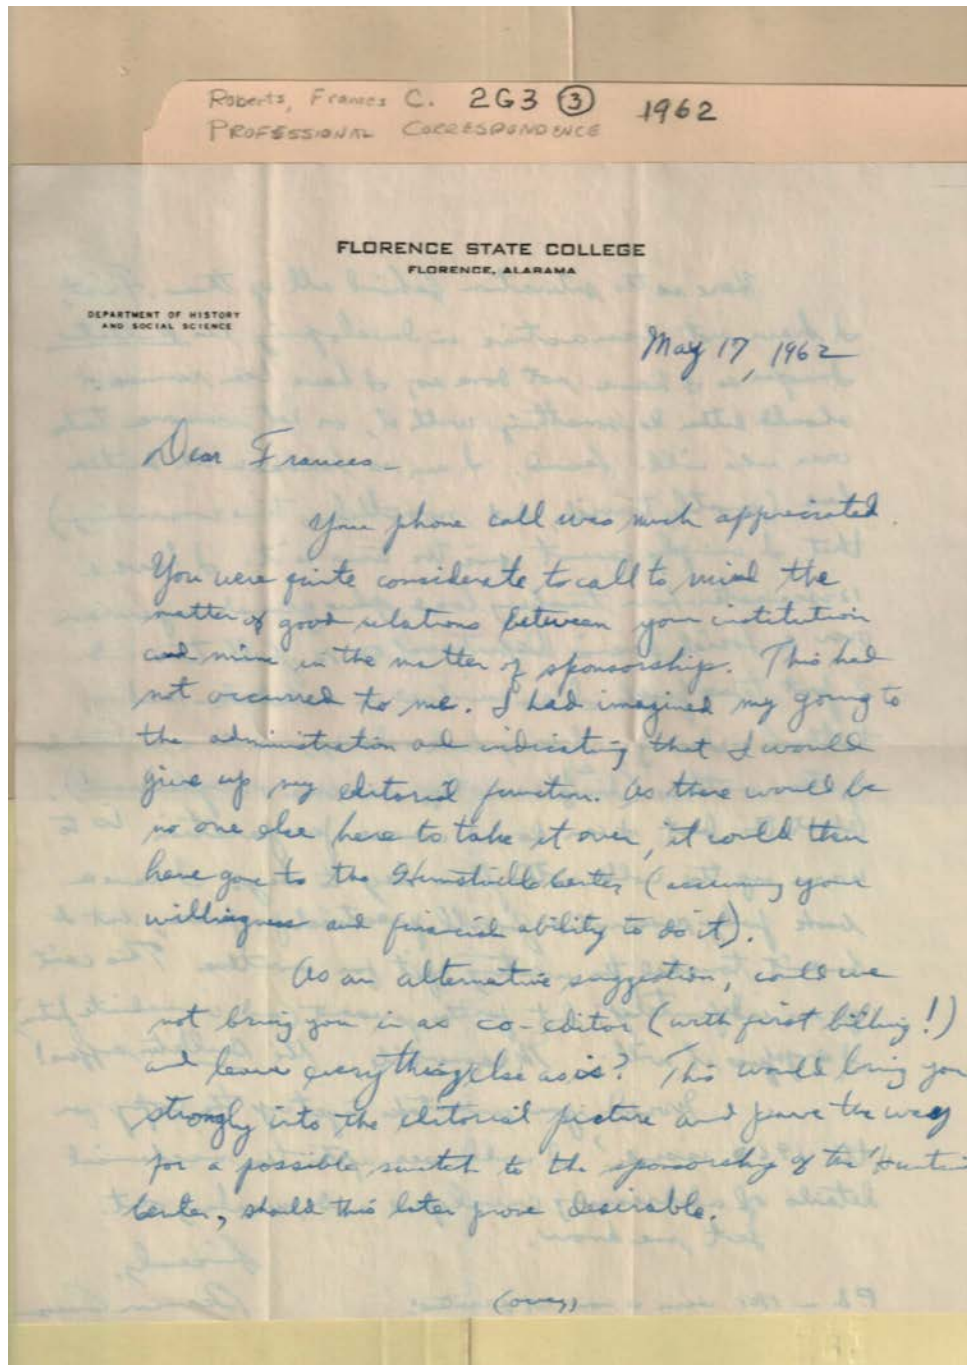 Roberts, Frances C. 2G3 (3) 1962
PROFESSIONAL CORRESPONDENCE
FLORENCE STATE COLLEGE
FLORENCE, ALABAMA
DEPARTMENT OF HISTORY
AND SOCIAL SCIENCE
May 17, 1962
Dear Frances-
Your phone call was much appreciated.
You were quite considerate to call to mind the
matter of good relations between your institution
and mine in the matter of sponsorship. This had
not occurred to me. I had imagined my going to
the administration and indicating that I would
give up my editorial function. As there would be
no one else here to take it over, it could then
have gone to the Huntsville Center (assuming your
willingness and financial ability to do it).
As an alternative suggestion, could we
not bring you in as co-editor (with first billing!)
and leave everything else as is? This would bring you
strongly into the editorial picture and pave the way
for a possible switch to the sponsorship of the
Center, should this later prove desirable.
(over)